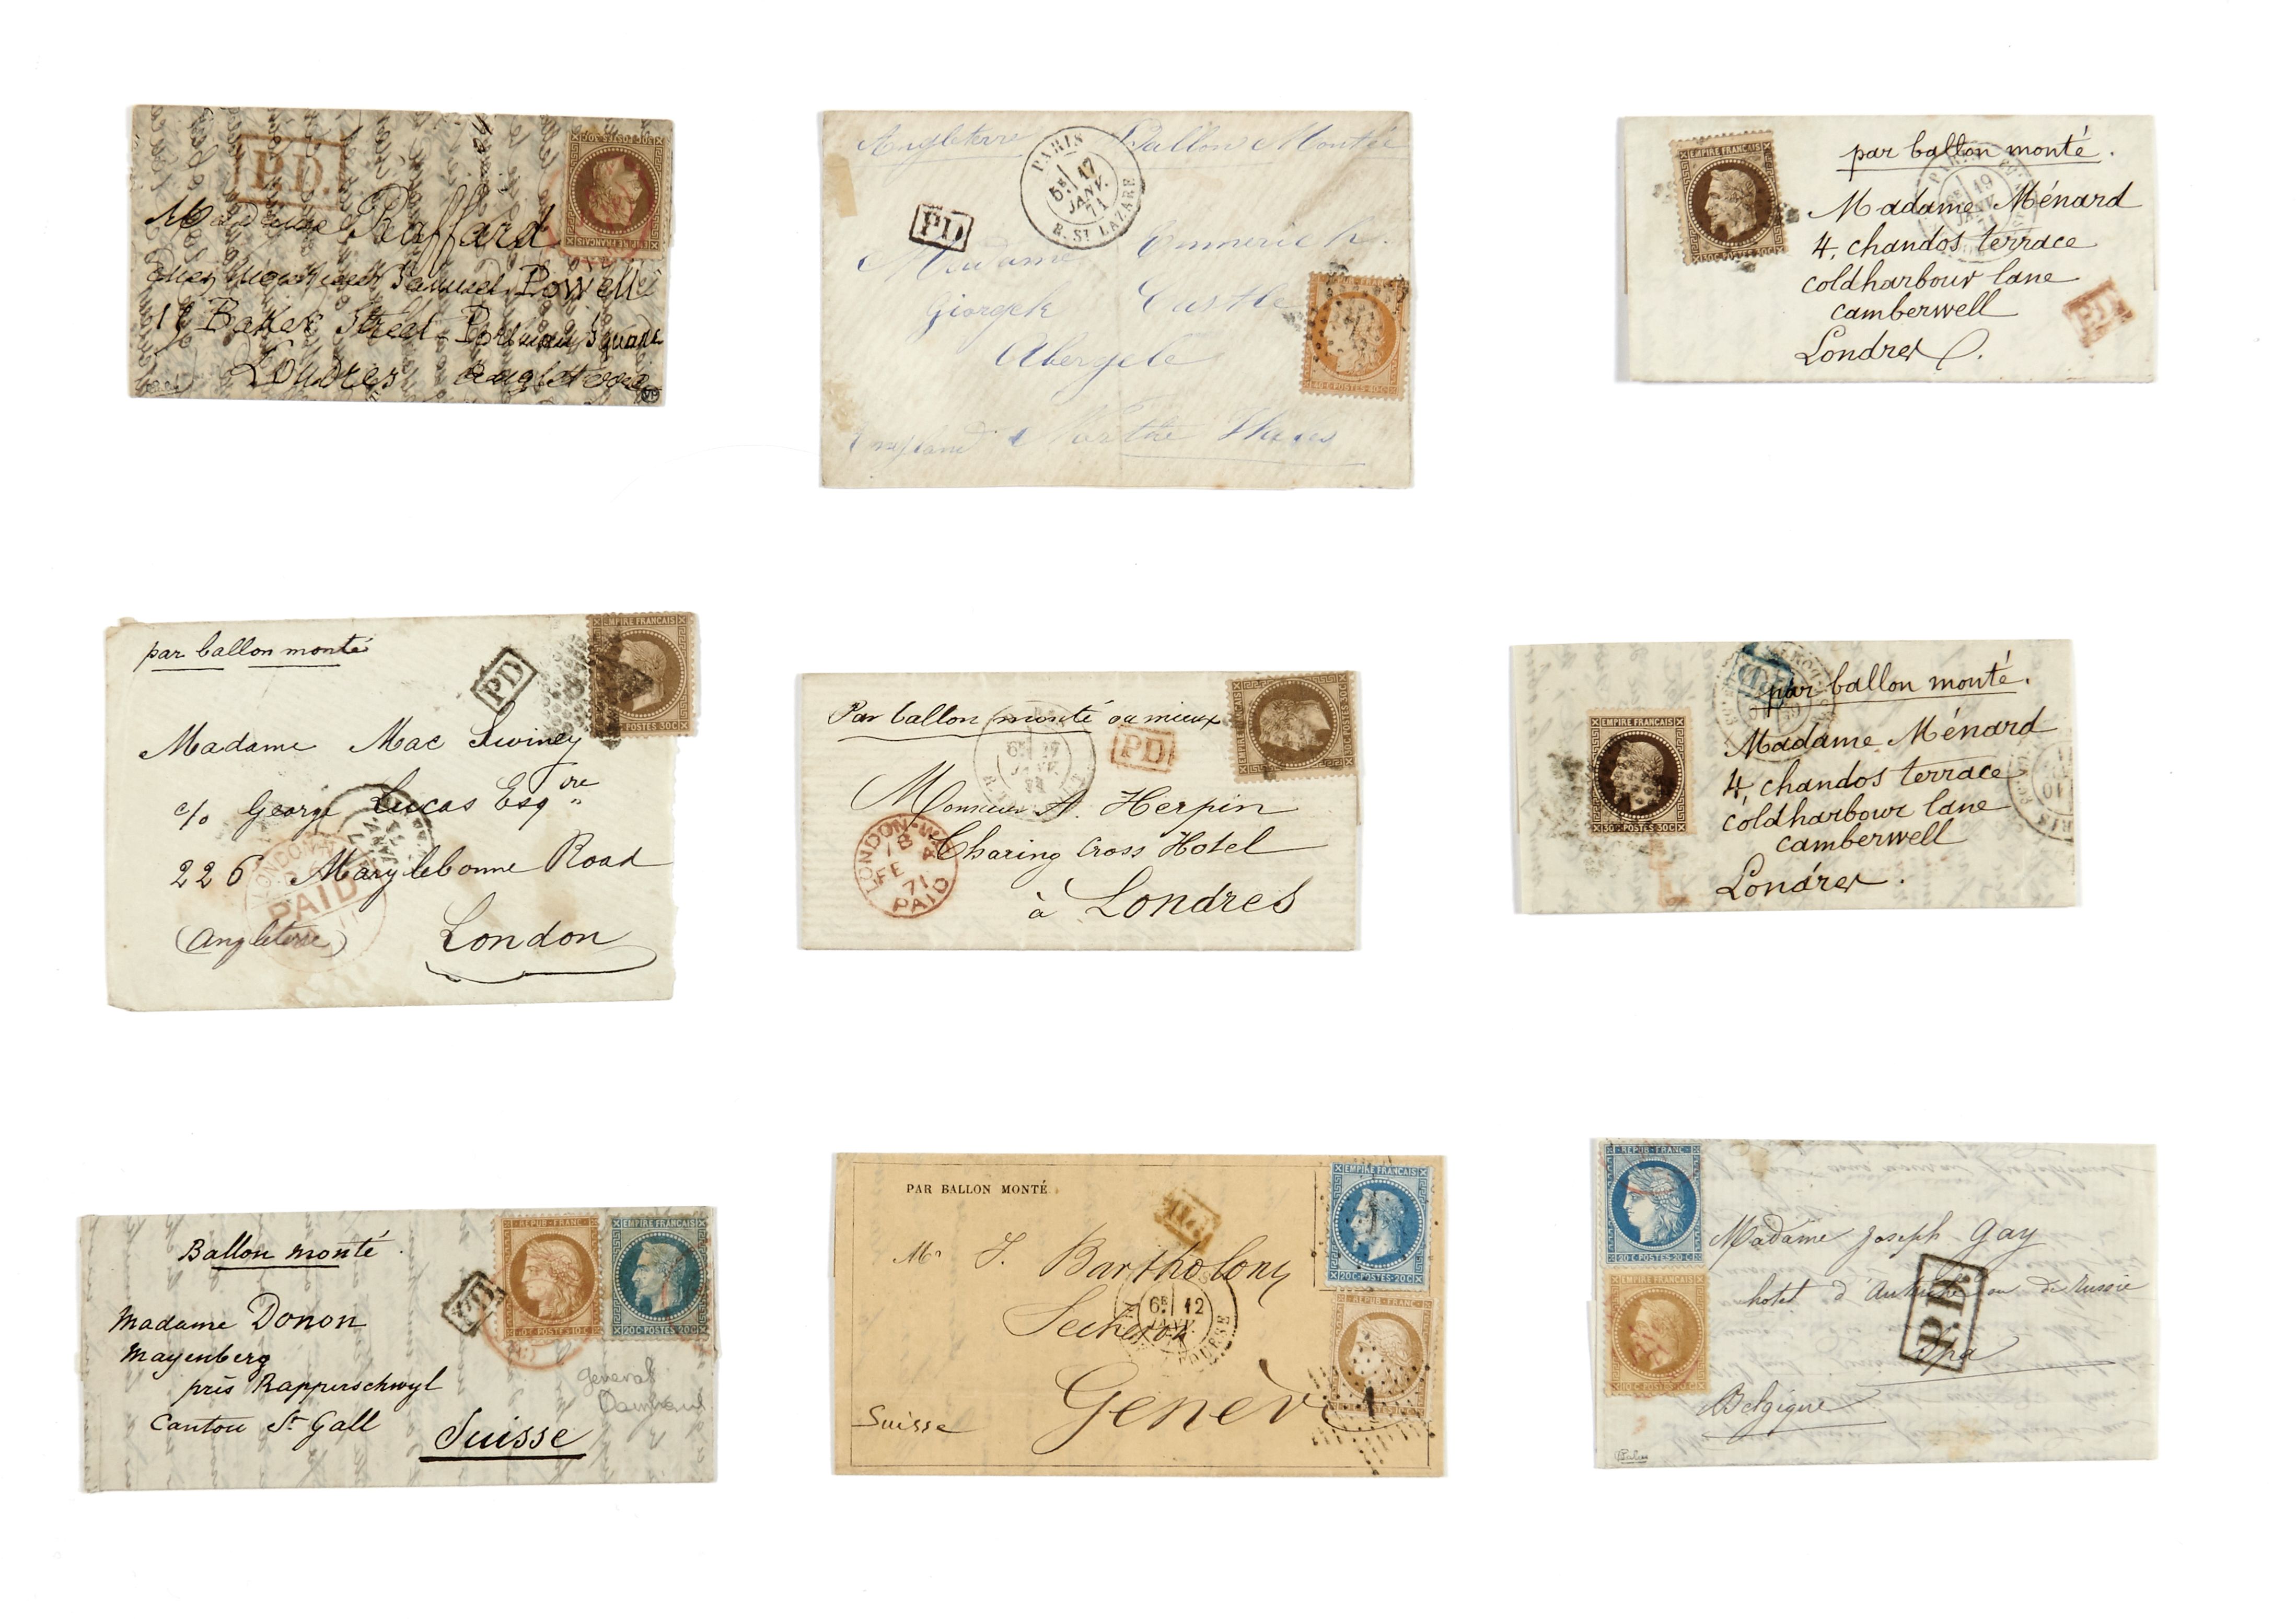 P.D.
30C POSTES 30C
EMPIRE FRANÇAIS
Madame Raffard
chez Monsieur Samuel Powell
Baker Street - Portman Square
Londres Angleterre
Angleterre Ballon Monté
PARIS
5E 17
JANV.
71
R. ST LAZARE
PD
Madame Emmerich.
Castle
Abergele
England
40 C POSTES 40 C
EMPIRE FRANÇAIS
30C POSTES 30C
par ballon monté.
19
JANV.
Madame Ménard
4, chandos terrace
coldharbour lane
camberwell
Londres
PD
par ballon monté
PD
EMPIRE FRANÇAIS
POSTES 30C
Madame Mac Swiney
c/o George Lucas Esqre
226 Marylebonne Road
(Angleterre) London
LONDON
PAID
JANV.
Par ballon monté ou mieux
PD
6E 17
JANV.
EMPIRE FRANÇAIS
30C POSTES 30C
Monsieur A. Herpin
Charing Cross Hotel
à Londres
LONDON
FE 4
71
PAID
PD
par ballon monté.
EMPIRE FRANÇAIS
30C POSTES 30C
Madame Ménard
4, chandos terrace
coldharbour lane
camberwell
Londres.
Ballon monté
PD
REPUB FRANC
10 C POSTES 10 C
EMPIRE FRANÇAIS
20C POSTES 20C
Madame Donon
Mayenberg
près Rapperschwyl
Canton St Gall
Suisse
General
PAR BALLON MONTÉ
EMPIRE FRANÇAIS
20C POSTES 20C
REPUB FRANC
Mr J. Bartholony
6E 12
JANV.
Genève
Suisse
REPUB FRANC
20 C POSTES 20 C
EMPIRE FRANÇAIS
10 C POSTES 10 C
Madame Joseph Gay
hotel d'Autriche ou de Russie
P.D.
Spa
Belgique